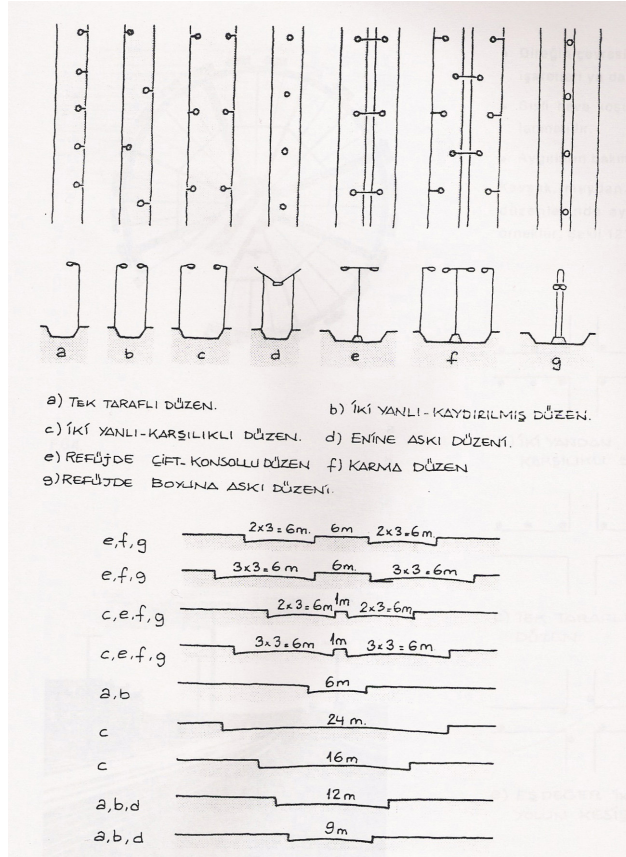 a b c d e f g
a) TEK TARAFLI DÜZEN.
b) İKİ YANLI-KAYDIRILMIŞ DÜZEN.
c) İKİ YANLI-KARŞILIKLI DÜZEN.
d) ENİNE ASKI DÜZENİ.
e) REFÜJDE ÇİFT-KONSOLLU DÜZEN
f) KARMA DÜZEN
g) REFÜJDE BOYUNA ASKI DÜZENİ.
e,f,g 2x3=6m. 6m 2x3=6m
e,f,g 3x3=6m 6m. 3x3=6m
c,e,f,g 2x3=6m 1m 2x3=6m
c,e,f,g 3x3=6m 1m 3x3=6m
a,b 6m
c 24 m.
c 16m
a,b,d 12m
a,b,d 9m